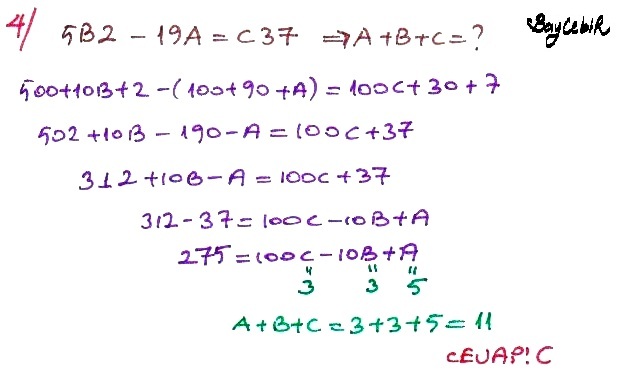 4/ 5B2 - 19A = C37 ⇒ A+B+C = ?
BayCebiR
500+10B+2 - (100+90+A) = 100C+30+7
502+10B - 190 - A = 100C+37
312+10B-A = 100C+37
312-37 = 100C-10B+A
275 = 100C-10B+A
" " "
3 3 5
A+B+C = 3+3+5 = 11
CEVAP! C